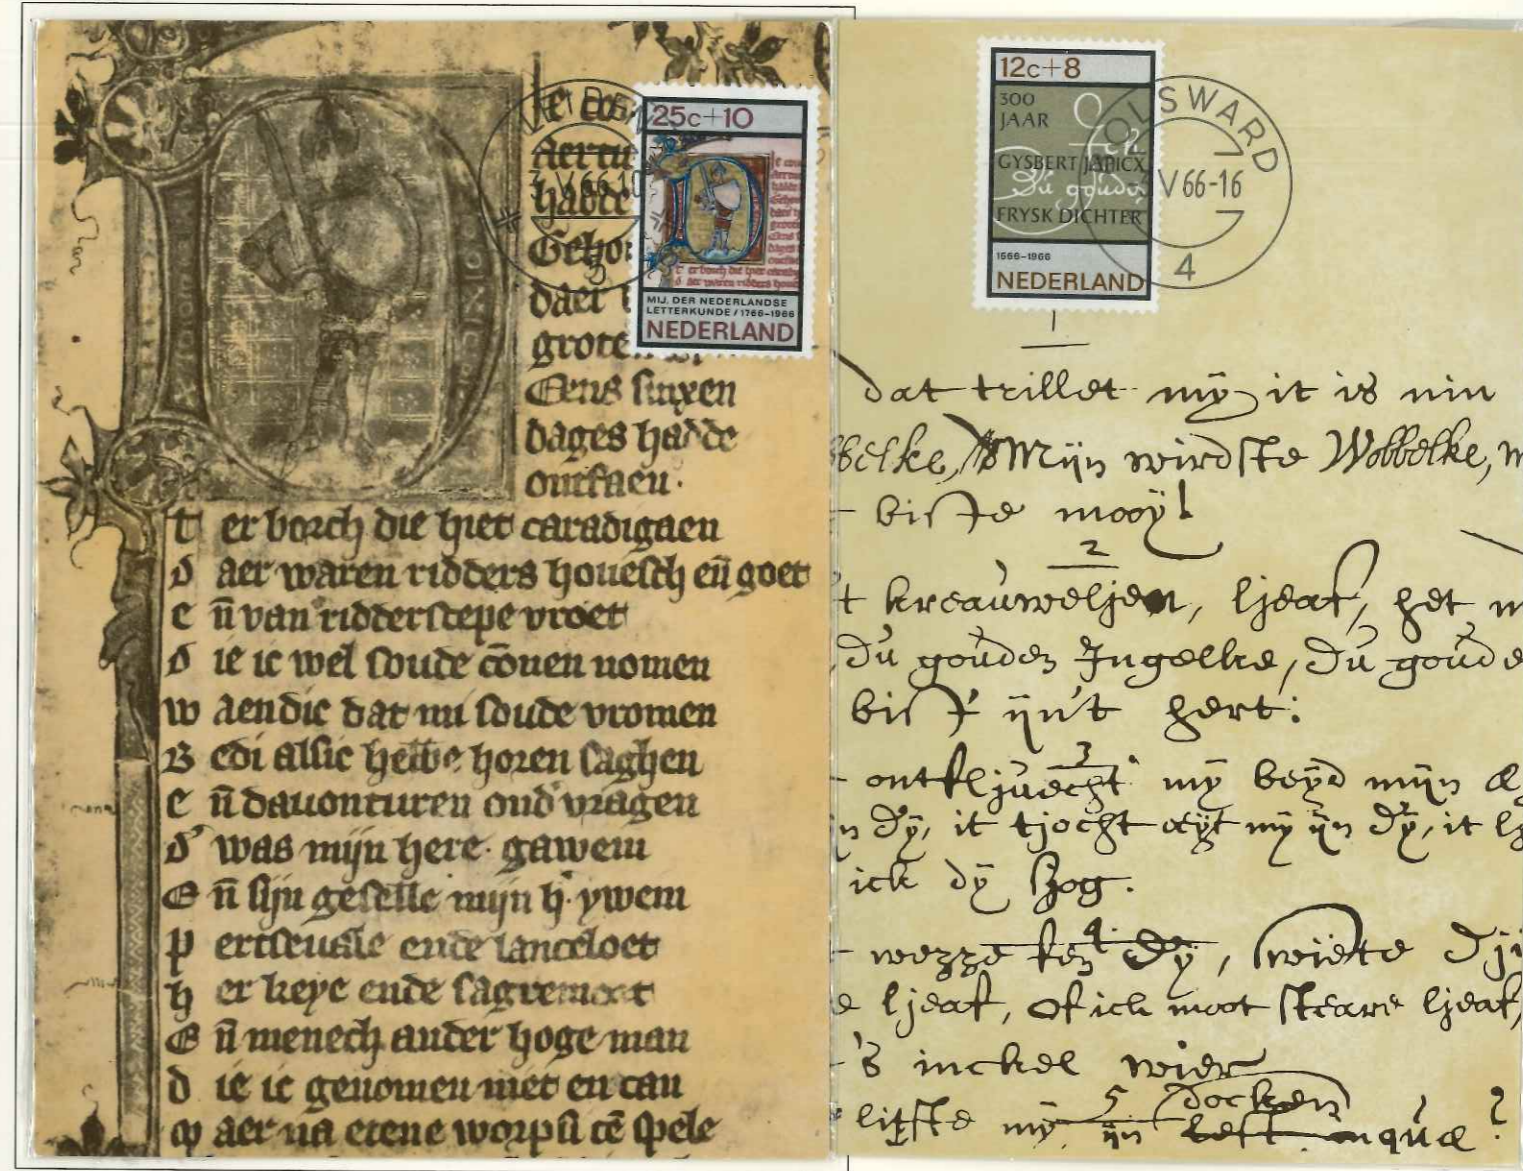 25c+10
MIJ. DER NEDERLANDSE
LETTERKUNDE / 1766-1966
NEDERLAND
LEIDEN
groten
Eens sinxen
dages hadde
ontfaen·
t er borch die hiet caradigaen
d aer waren ridders houesch en̄ goet
e n̄ van ridderscepe vroet
d ie ic wel soude cōnen nomen
w aendic dat mi soude vromen
B edi alsic hebbe horen saghen
e n̄ dauonturen ond vragen
d was mijn here gawein
E n̄ sijn geselle mijn h· ywein
p ertseuale ende lanceloet
h er keye ende sagremort
E n̄ menech ander hoge man
d ie ic genomen niet en can
w aer na etene worpsi tē spele
12c+8
300
JAAR
GYSBERT JAPICX
Du gouden
FRYSK DICHTER
1666-1966
NEDERLAND
OLSWARD
V 66-16
4
1
dat trillet my it is nin
belke, Mijn wirdste Wobbelke, m
biste mooy!
2
t kreauweljen, ljeaf, het m
Du gouden Ingelke, Du goude
bist ijn't hert:
3
ontkljuecht my beyd mijn
n Dy, it tjocht my ijn Dy, it
ick dy sjog.
4
wezze ken Dy, swiete
e ljeaf, Of ick moot steare ljeaf,
's inckel wier
5 docken
litste my ijn